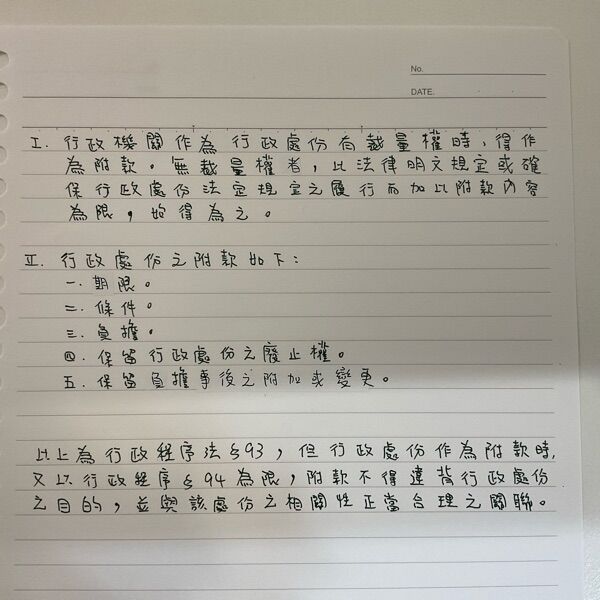 No.
DATE.
I. 行政機關作為行政處份有裁量權時,得作
為附款。無裁量權者,以法律明文規定或確
保行政處份法定規定之履行而加以附款內容
為限,始得為之。
II. 行政處份之附款如下:
一.期限。
二.條件。
三.負擔。
四.保留行政處份之廢止權。
五.保留負擔事後之附加或變更。
以上為行政程序法§93,但行政處份作為附款時,
又以行政程序§94為限,附款不得違背行政處份
之目的,並與該處份之相關性正當合理之關聯。